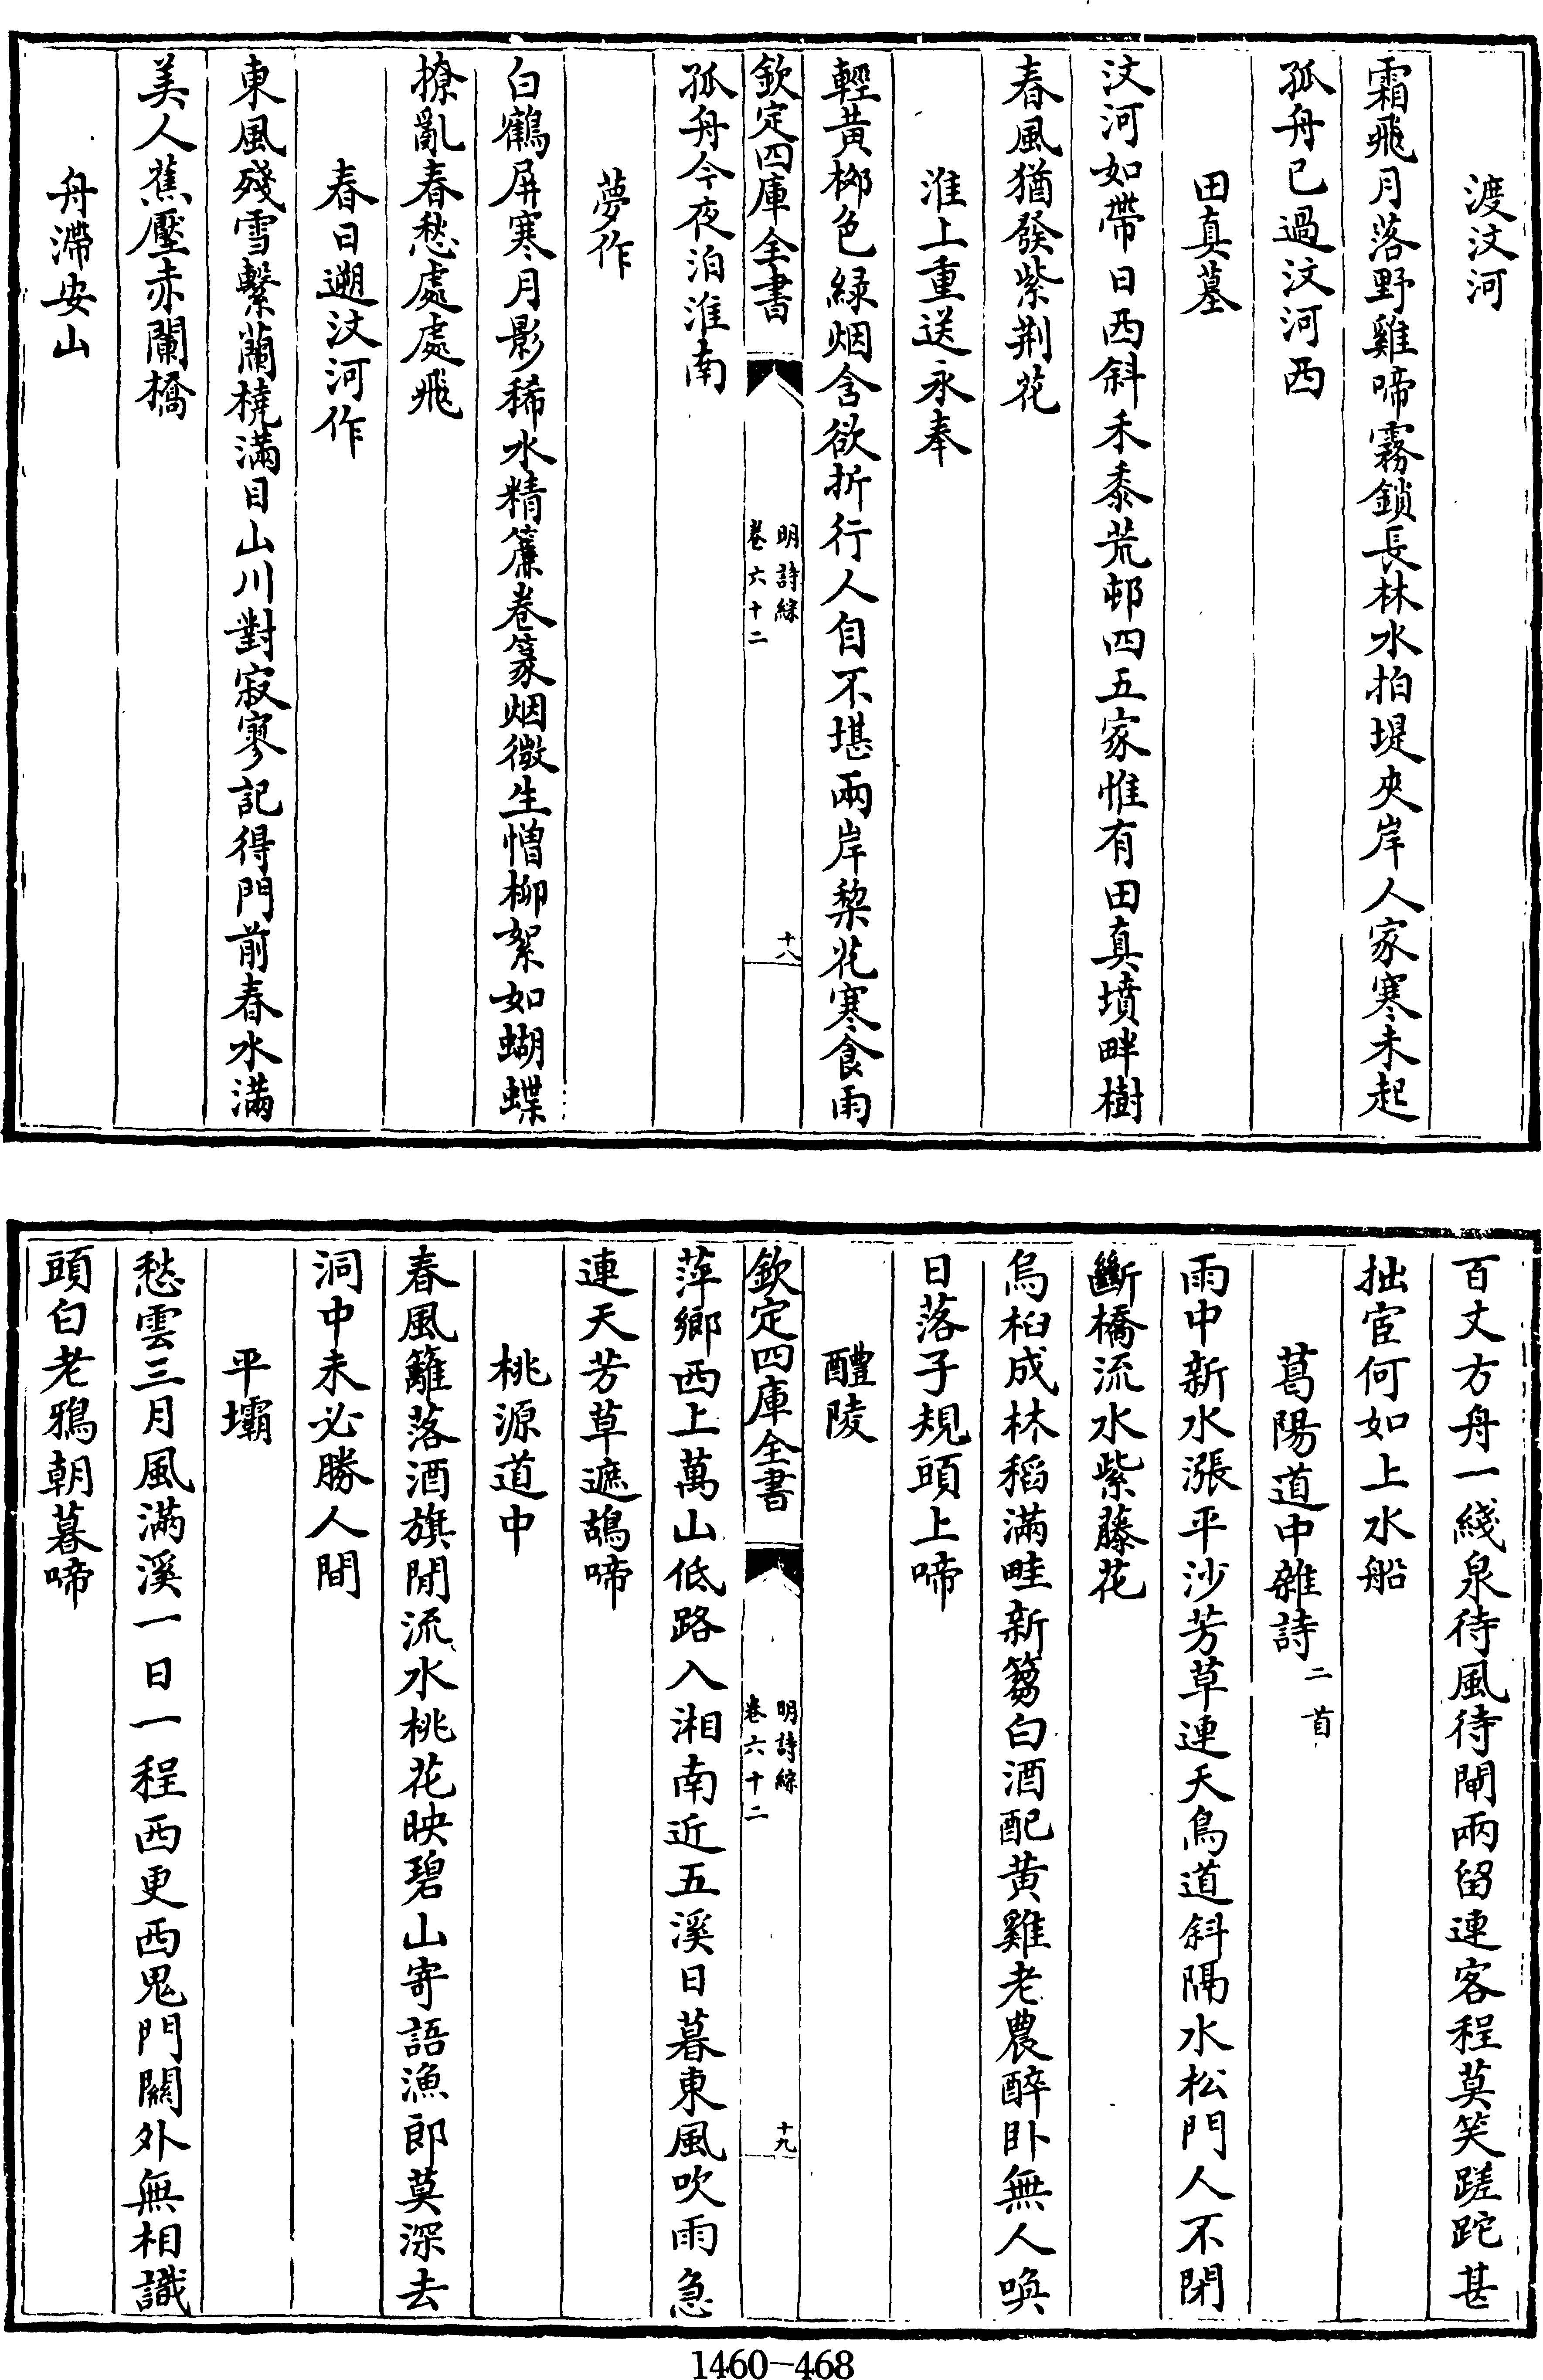 渡汶河
霜飛月落野雞啼霧鎖長林水拍堤夾岸人家寒未起
孤舟已過汶河西
田真墓
汶河如帶日西斜禾黍荒邨四五家惟有田真墳畔樹
春風猶發紫荆花
淮上重送永奉
輕黄柳色緑烟含欲折行人自不堪兩岸棃花寒食雨
欽定四庫全書
明詩綜
卷六十二
十八
孤舟今夜泊淮南
夢作
白鶴屏寒月影稀水精簾卷篆烟微生憎柳絮如蝴蝶
撩亂春愁處處飛
春日遡汶河作
東風殘雪繫蘭橈滿目山川對寂寥記得門前春水滿
美人蕉壓赤闌橋
舟滯安山
百丈方舟一綫泉待風待閘兩留連客程莫笑蹉跎甚
拙宦何如上水船
葛陽道中雜詩二首
雨中新水漲平沙芳草連天鳥道斜隔水松門人不閉
斷橋流水紫藤花
烏桕成林稻滿畦新篘白酒配黄雞老農醉卧無人喚
日落子規頭上啼
醴陵
欽定四庫全書
明詩綜
卷六十二
十九
萍鄉西上萬山低路入湘南近五溪日暮東風吹雨急
連天芳草遮鴣啼
桃源道中
春風籬落酒旗閒流水桃花映碧山寄語漁郎莫深去
洞中未必勝人間
平壩
愁雲三月風滿溪一日一程西更西鬼門關外無相識
頭白老鴉朝暮啼
1460-468